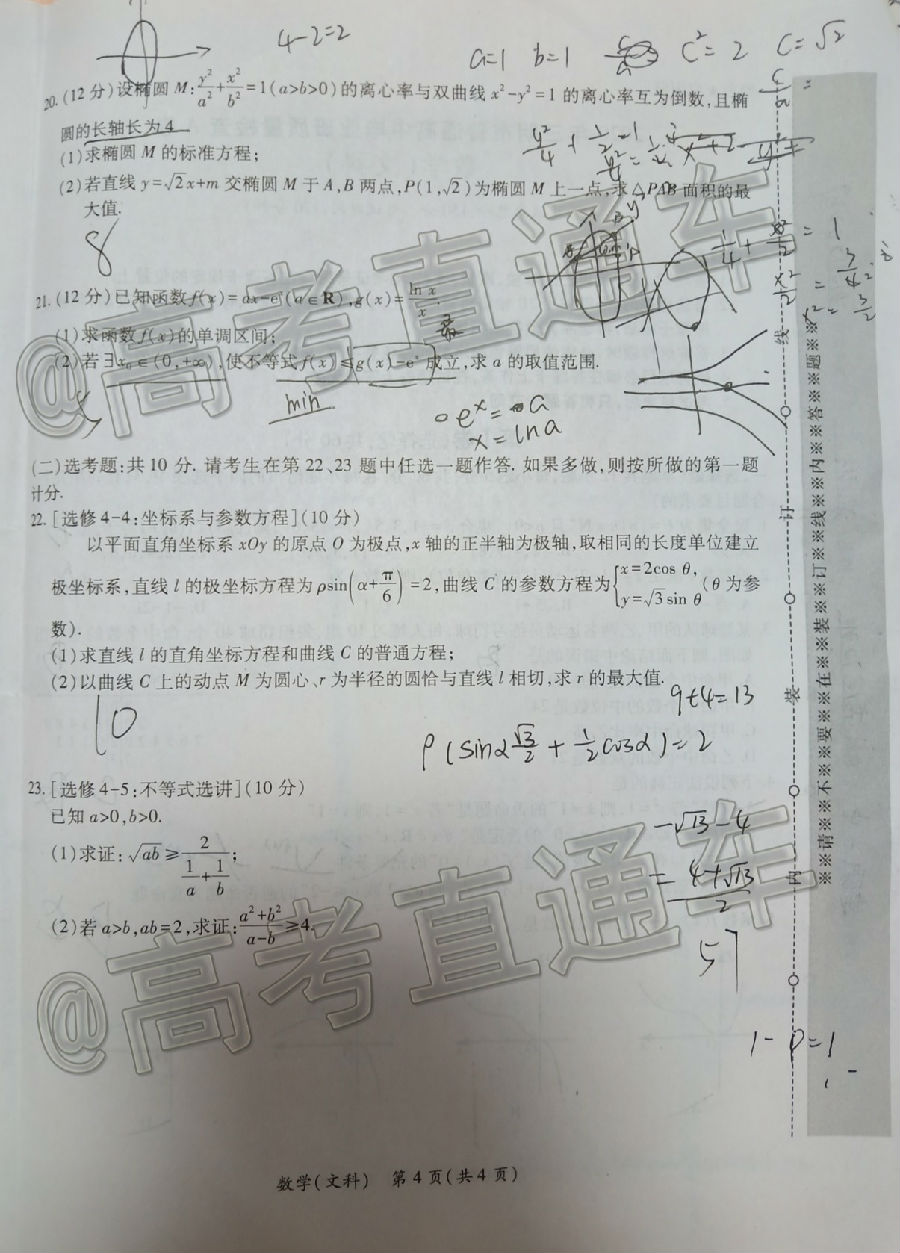 4-2=2
a=1 b=1 c²=2 c=√2
20.(12分)设椭圆 M:y²/a²+x²/b²=1(a>b>0)的离心率与双曲线 x²-y²=1 的离心率互为倒数,且椭
圆的长轴长为 4
(1)求椭圆 M 的标准方程;
(2)若直线 y=√2x+m 交椭圆 M 于 A,B 两点,P(1,√2)为椭圆 M 上一点,求△PAB 面积的最
大值.
8
21.(12分)已知函数 f(x)=ax-eˣ(a∈R),g(x)=ln x/x.
(1)求函数 f(x)的单调区间;
(2)若∃x₀∈(0,+∞),使不等式 f(x)≤g(x)-eˣ 成立,求 a 的取值范围.
min
eˣ=a
x=lna
(二)选考题:共 10 分. 请考生在第 22、23 题中任选一题作答. 如果多做,则按所做的第一题
计分.
22.[选修 4-4:坐标系与参数方程](10 分)
以平面直角坐标系 xOy 的原点 O 为极点,x 轴的正半轴为极轴,取相同的长度单位建立
极坐标系,直线 l 的极坐标方程为 ρsin(α+π/6)=2,曲线 C 的参数方程为{x=2cos θ, y=√3sin θ(θ 为参
数).
(1)求直线 l 的直角坐标方程和曲线 C 的普通方程;
(2)以曲线 C 上的动点 M 为圆心、r 为半径的圆恰与直线 l 相切,求 r 的最大值.
9+4=13
10
ρ(sinα √3/2+1/2cosα)=2
23.[选修 4-5:不等式选讲](10 分)
已知 a>0,b>0.
(1)求证:√ab≥2/(1/a+1/b);
(2)若 a>b,ab=2,求证:(a²+b²)/(a-b)≥4.
-√13-4
=(4+√13)/2
57
1-0=1
数学(文科) 第 4 页(共 4 页)
@高考直通车
@高考直通车
线
订
装
内
※※请※※不※※要※※在※※装※※订※※线※※内※※答※※题※※